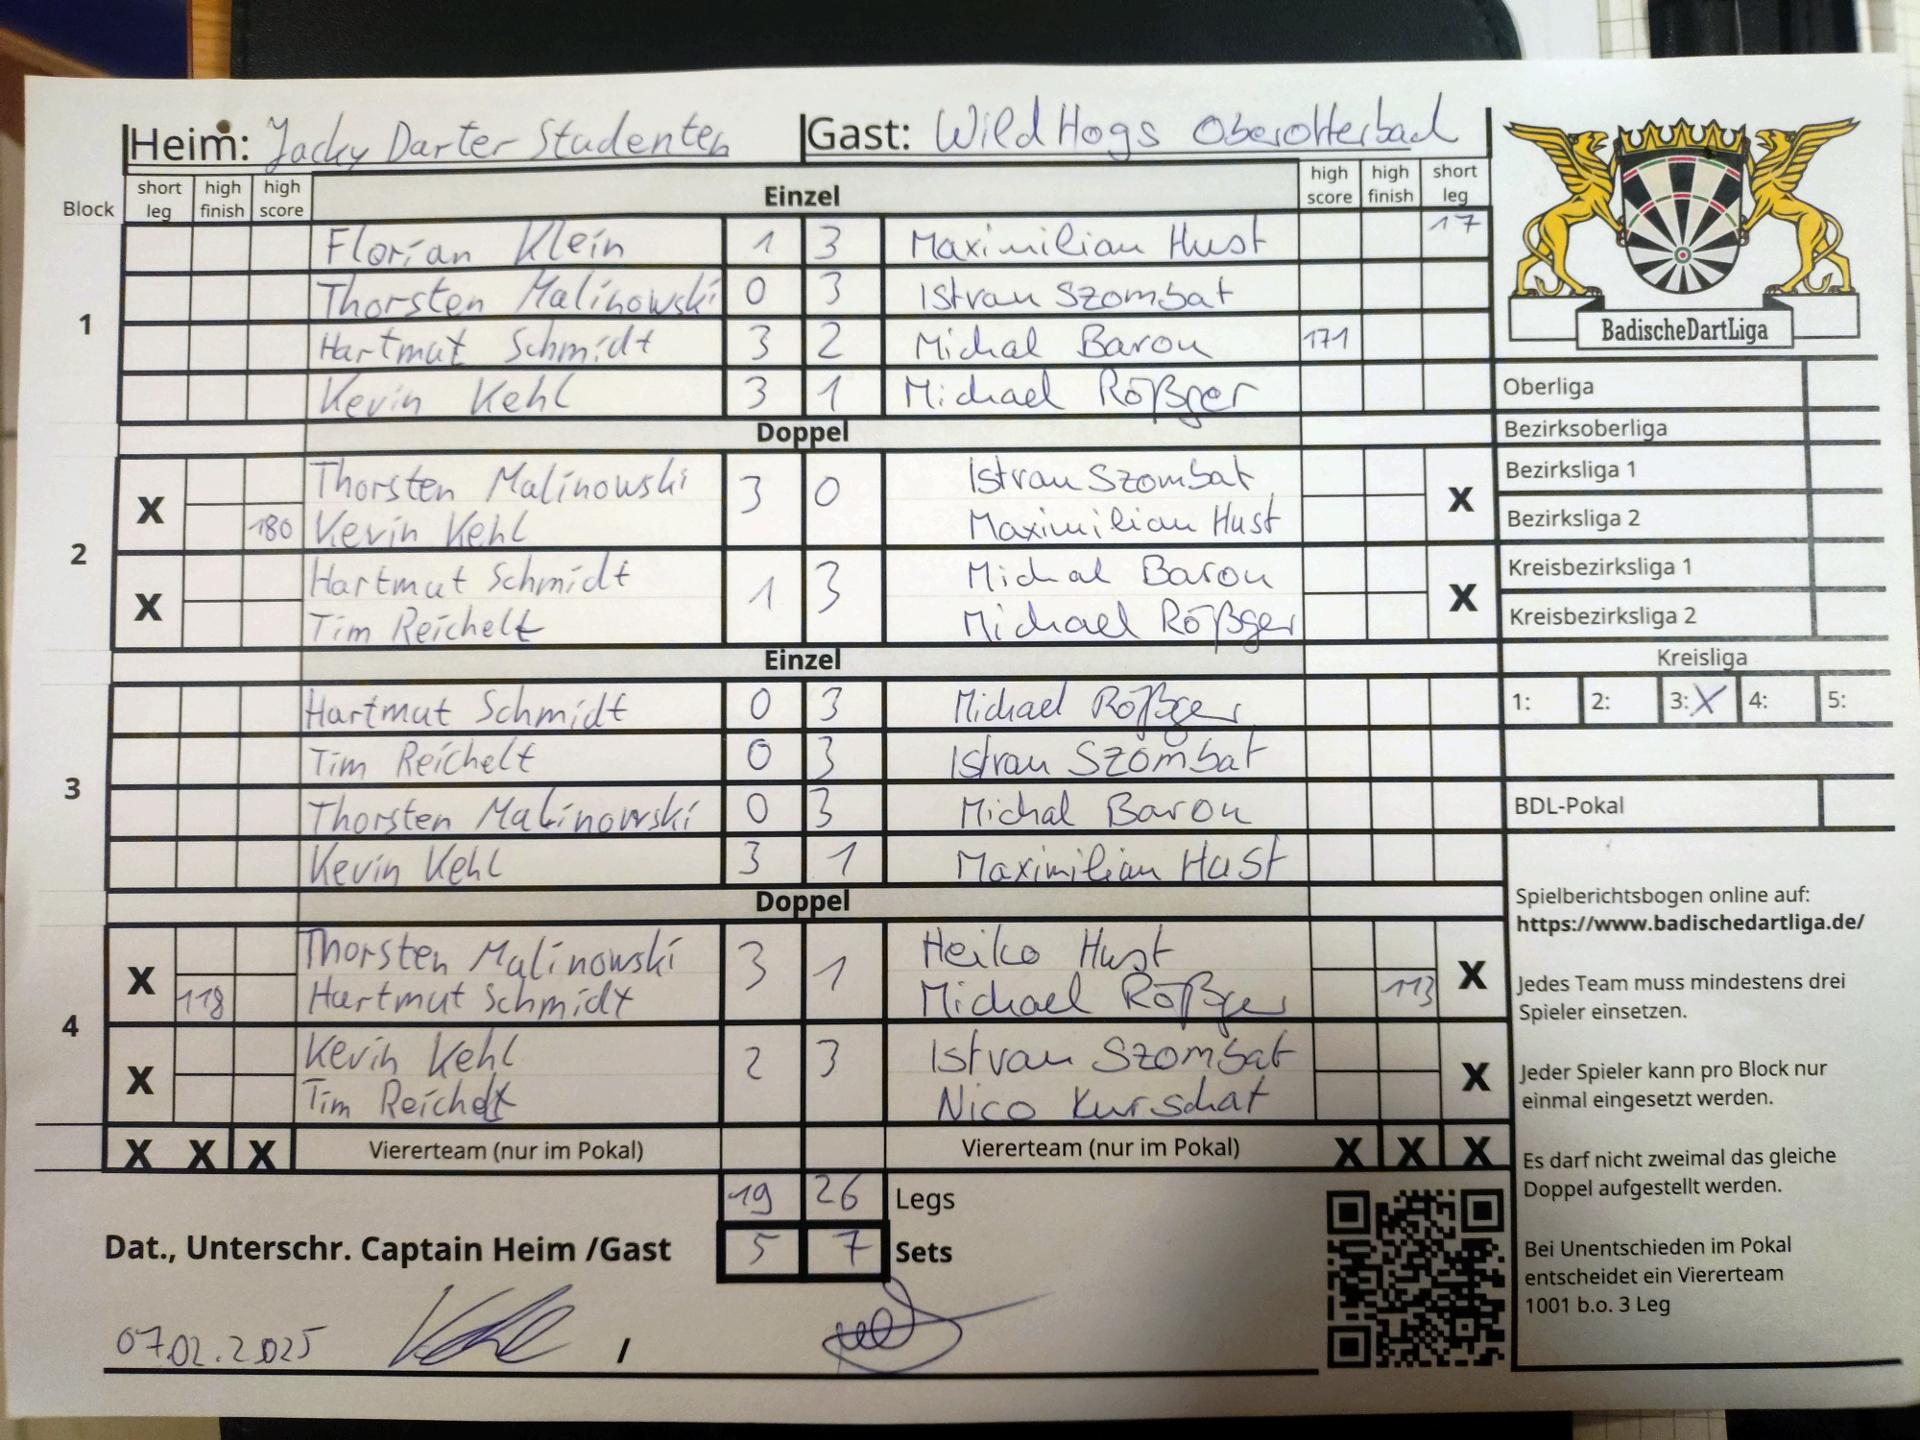 Heim: Jacky Darter Studenten Gast: Wild Hogs Oberotterbad
Block short leg high finish high score Einzel high score high finish short leg
1
Florian Klein 1 3 Maximilian Hust 17
Thorsten Malinowski 0 3 Istvan Szombat
Hartmut Schmidt 3 2 Michal Baron 171
Kevin Kehl 3 1 Michael Rößger
Doppel
2
X Thorsten Malinowski 3 0 Istvan Szombat X
180 Kevin Kehl Maximilian Hust
X Hartmut Schmidt 1 3 Michal Baron X
Tim Reichelt Michael Rößger
Einzel
3
Hartmut Schmidt 0 3 Michael Rößger
Tim Reichelt 0 3 Istvan Szombat
Thorsten Malinowski 0 3 Michal Baron
Kevin Kehl 3 1 Maximilian Hust
Doppel
4
X Thorsten Malinowski 3 1 Heiko Hust X
118 Hartmut Schmidt Michael Rößger 113
X Kevin Kehl 2 3 Istvan Szombat X
Tim Reichelt Nico Kurschat
X X X Vierterteam (nur im Pokal) Viererteam (nur im Pokal) X X X
19 26 Legs
Dat., Unterschr. Captain Heim /Gast 5 7 Sets
07.02.2025 /
BadischeDartLiga
Oberliga
Bezirksoberliga
Bezirksliga 1
Bezirksliga 2
Kreisbezirksliga 1
Kreisbezirksliga 2
Kreisliga
1: 2: 3: X 4: 5:
BDL-Pokal
Spielberichtsbogen online auf:
https://www.badischedartliga.de/
Jedes Team muss mindestens drei
Spieler einsetzen.
Jeder Spieler kann pro Block nur
einmal eingesetzt werden.
Es darf nicht zweimal das gleiche
Doppel aufgestellt werden.
Bei Unentschieden im Pokal
entscheidet ein Viererteam
1001 b.o. 3 Leg